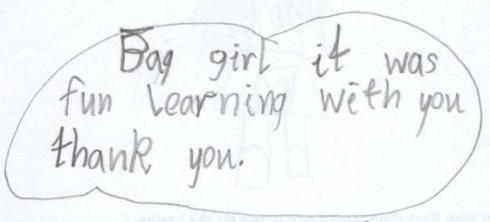 Bag girl it was
fun learning with you
thank you.